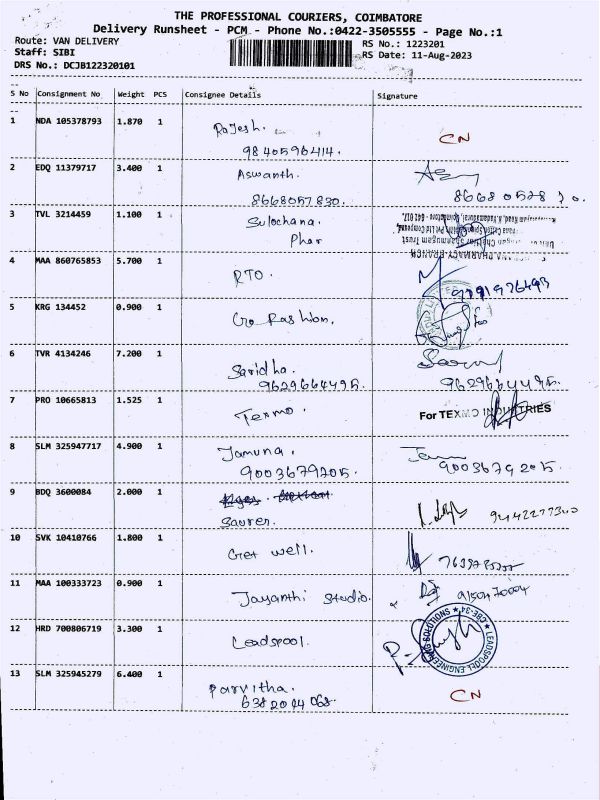 THE PROFESSIONAL COURIERS, COIMBATORE
Delivery Runsheet - PCM - Phone No.:0422-3505555 - Page No.:1
Route: VAN DELIVERY RS No.: 1223201
Staff: SIBI RS Date: 11-Aug-2023
DRS No.: DCJB122320101
S No Consignment No Weight PCS Consignee Details Signature
1 NDA 105378793 1.870 1 Rajesh. CN
9840596414.
2 EDQ 11379717 3.400 1 Aswanth.
8668057830. 86680578
3 TVL 3214459 1.100 1 Sulochana.
Phar
4 MAA 860765853 5.700 1 RTO. 9791926493
5 KRG 134452 0.900 1 Go Fashion.
6 TVR 4134246 7.200 1 Saridha.
9629664495. 9629664495.
7 PRO 10665813 1.525 1 Texmo. For TEXMO INDUSTRIES
8 SLM 325947717 4.900 1 Jamuna.
9003679205. 9003679205.
9 BDQ 3600084 2.000 1
Sauren.
10 SVK 10410766 1.800 1 Get well.
11 MAA 100333723 0.900 1 Jayanthi Studio. 9150470004
12 HRD 700806719 3.300 1 Leadspool. LEADSPOOL ENGINEERING SOLUTIONS CBE-34
13 SLM 325945279 6.400 1 Parvitha. CN
6382014068.